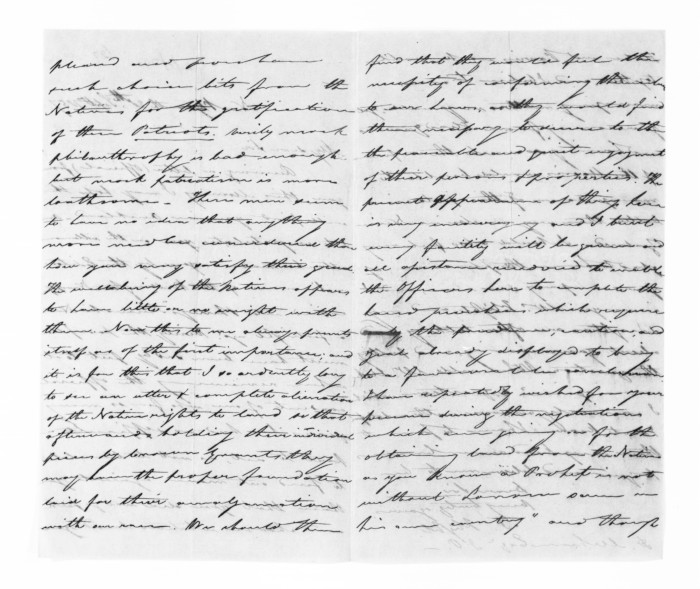 pleased and purchase
such choice bits from the
Natives for the gratification
of these Patriots, surely mock
philanthrophy is bad enough
but mock patriotism is more
loathsome. These men seem
to have no idea that anything
more need be considered than
how you may satisfy their greed.
The wellbeing of the Natives appears
to have little or no weight with
them. Now this to me always presents
itself as of the first importance, and
it is for this that I so ardently long
to see an utter & complete alienation
of the Natives rights to land so that
afterwards holding their individual
pieces by Crown Grants, they
may have the proper foundation
laid for their amalgamation
with our race. We should then
find that they would feel the
necessity of conforming themselves
to our laws, as they would find
them necessary to secure to them
the peaceable and quiet enjoyment
of their persons & properties. The
present appearance of things here
is very and I trust
every facility will be given and
all assistance rendered to enable
the Officers here to complete the
land purchases which require
only the prudence, caution, and
zeal already displayed to bring
to a conclusion.
I have repeatedly wished for your
presence during the negotiations
which are going on for the
obtaining land from the Natives
as you know "a Prophet is not
without honour save in
his own country" and though